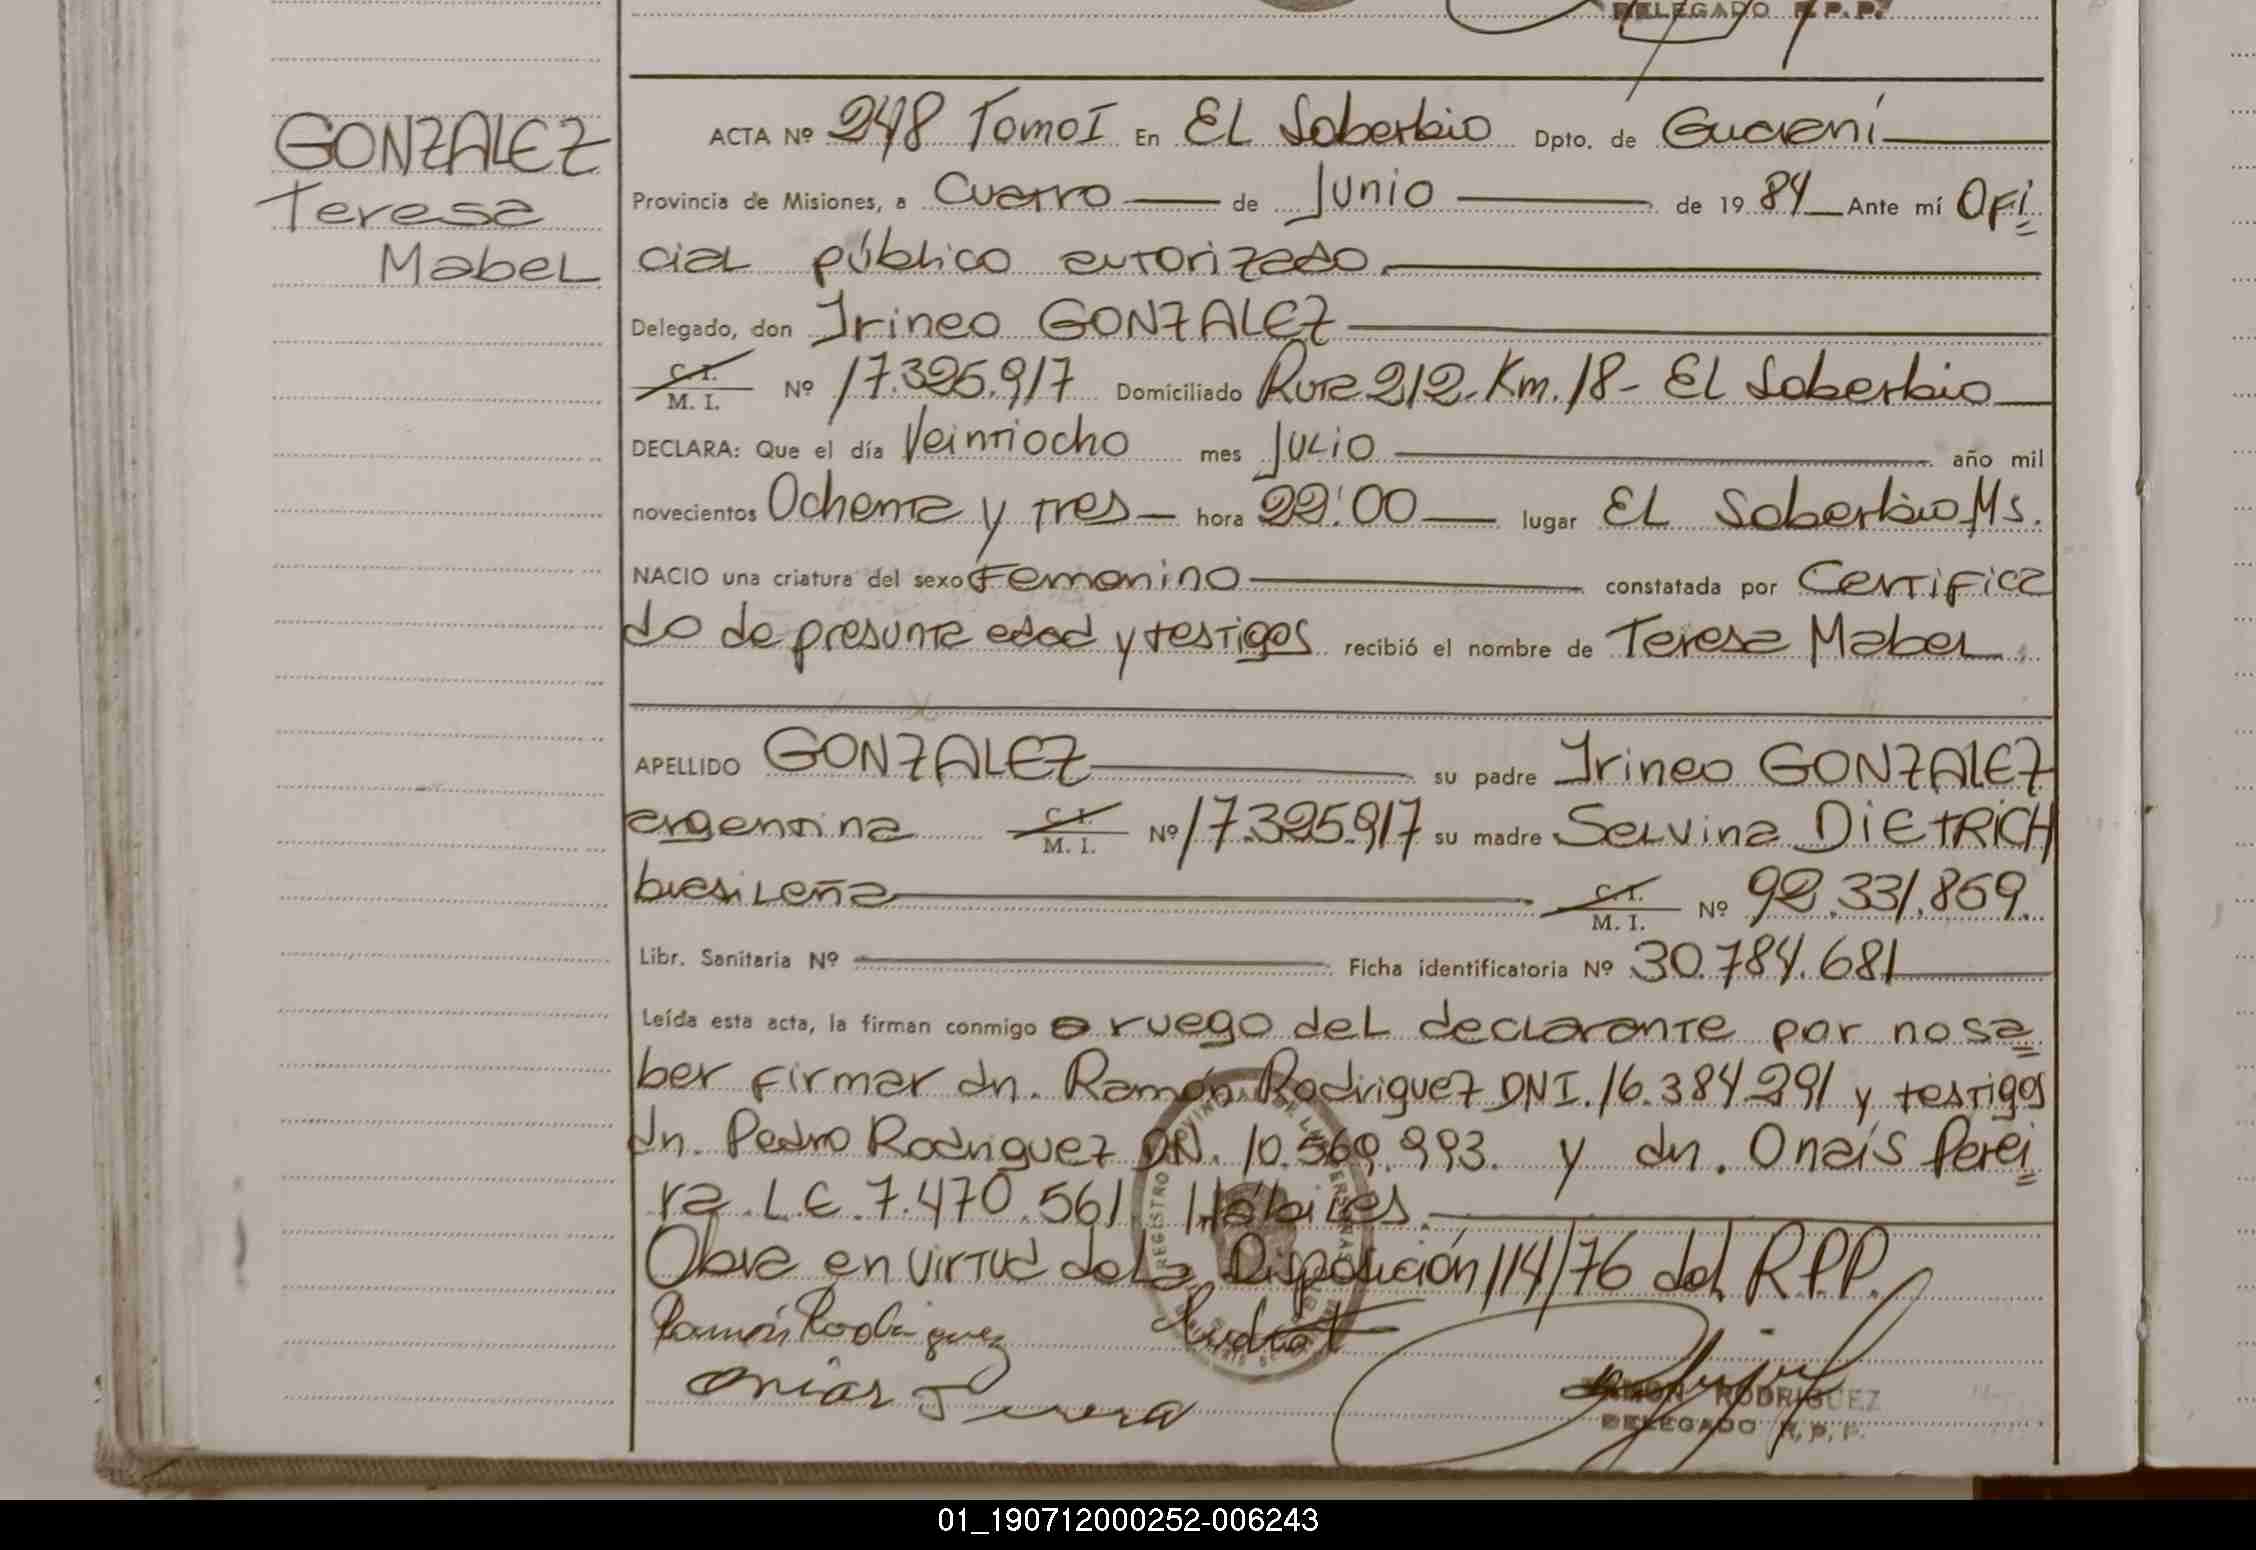 DELEGADO R.P.P.
GONZALEZ
Teresa
Mabel
ACTA Nº 248 Tomo I En El Soberbio Dpto. de Guaraní
Provincia de Misiones, a Cuatro de Junio de 19 84 Ante mí Ofi
cial público autorizado.
Delegado, don Irineo GONZALEZ
C. I. M. I. Nº 17.325.917 Domiciliado Ruta 212-Km.18- El Soberbio
DECLARA: Que el día Veintiocho mes Julio año mil
novecientos Ochenta y tres hora 22:00 lugar El Soberbio Ms.
NACIO una criatura del sexo Femenino constatada por Certifica
do de presunta edad y testigos recibió el nombre de Teresa Mabel
APELLIDO GONZALEZ su padre Irineo GONZALEZ
argentina C. I. M. I. Nº 17.325.917 su madre Selvina DIETRICH
brasileña C. I. M. I. Nº 92.331.869.
Libr. Sanitaria Nº Ficha identificatoria Nº 30.784.681
Leída esta acta, la firman conmigo a ruego del declarante por no sa
ber firmar dn. Ramón Rodriguez DNI. 16.384.291 y testigos
dn. Pedro Rodriguez DN. 10.569.993. y dn. Onais Perei
ra L.E. 7.470.561 Hábiles.
Obra en virtud de la Disposición 114/76 del R.P.P.
Ramón Rodriguez
RAMON RODRIGUEZ
DELEGADO R.P.P.
01_190712000252-006243